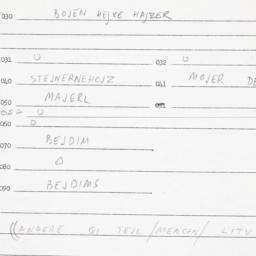 030 BOJEN HEJXE HAJZER
031 U 032 U
040 STEJNERNEHOJZ 041 MOJER DE
050 MAJERL 051
052 U
060 U
070 BEJDIM
080 O
090 BEJDIMS
((ANDERE QI TEJL/MENCHN/ LITV